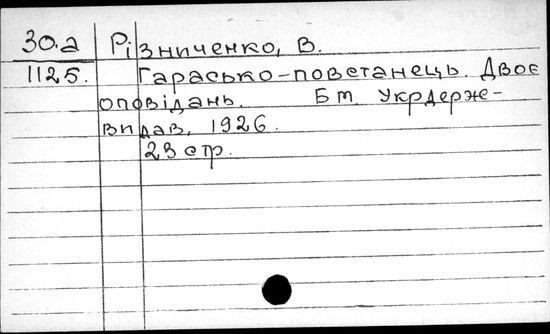 30.а Різниченко, В.
1125. Гарасько-повстанець. Двоє
оповідань. Б м. Укрдерж-
видав, 1926.
23 стр.